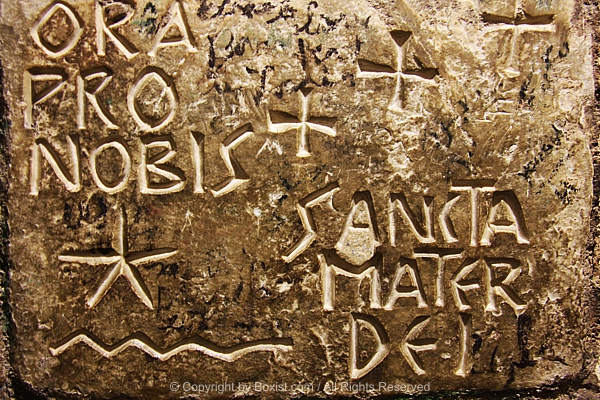 ORA
PRO
NOBIS
SANCTA
MATER
DEI
© Copyright by Boxist.com / All Rights Reserved